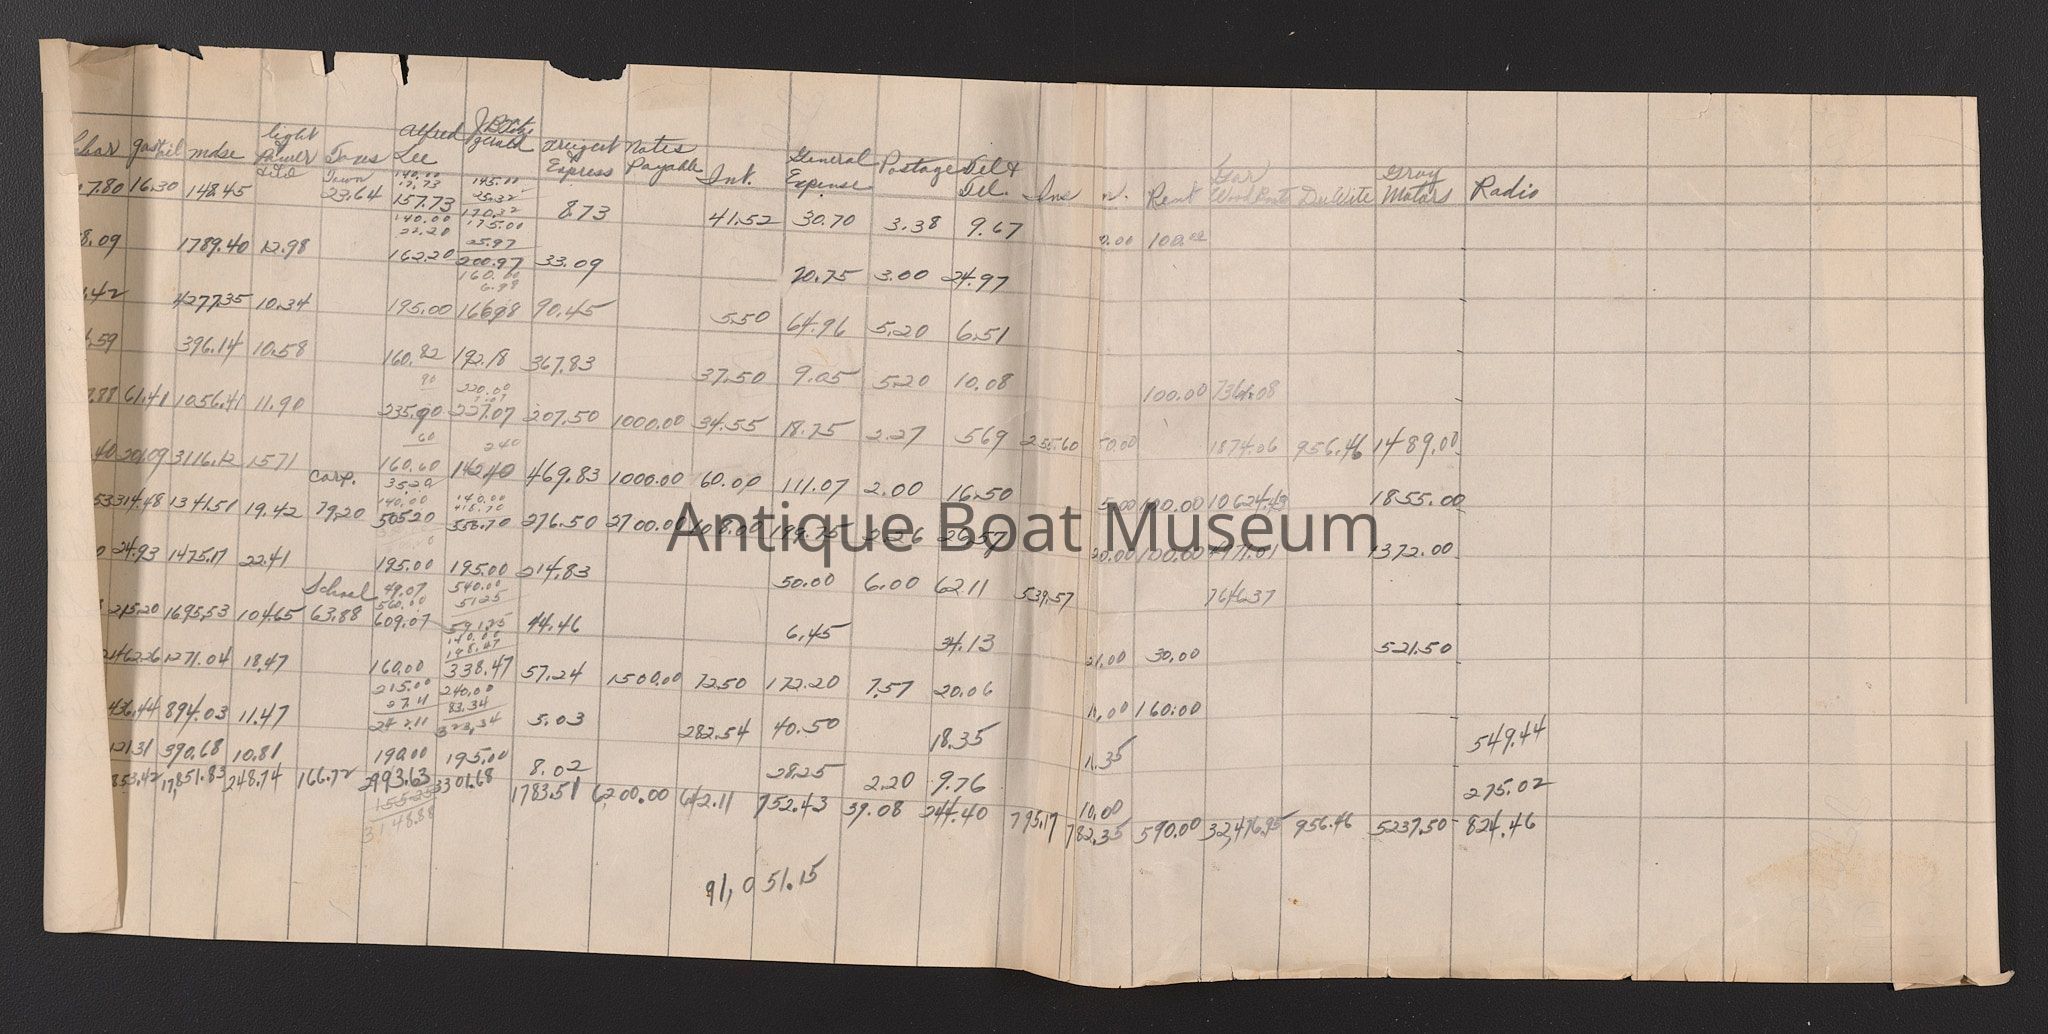 light & Alfred J.B. Fitz
gas oil mdse Power Taxes Lee gerald Freight Notes Int. General Postage Tel & Ins Rent Gar Gray Radio
Express Payable Expense Tel. Wood Boats DuWite Motors
7.80 16.30 148.45 Town 140.00 145.00
23.64 17.73 25.32
157.73 170.32 8.73 41.52 30.70 3.38 9.67
8.09 1789.40 12.98 140.00 175.00 100.00
22.20 25.97
162.20 200.97 33.09 20.75 3.00 24.97
.42 4277.35 10.34 160.00
6.98
195.00 166.98 90.45 5.50 64.96 5.20 6.51
.59 396.14 10.58 160.82 192.18 367.83 37.50 9.05 5.20 10.08
90 220.00 100.00 7364.08
7.07
.88 61.41 1056.41 11.90 235.90 227.07 207.50 1000.00 34.55 18.75 2.27 569 255.60 50.00 1874.06 956.46 1489.00
60 240
40 3116.12 1571 160.60 142.40 469.83 1000.00 60.00 111.07 2.00 16.50 5.00 100.00 10624.43 1855.00
Corp. 35.20
140.00 140.00
418.70
53 314.48 1341.51 19.42 79.20 505.20 558.70 276.50 2700.00 108.00 199.75 2.26 26.57 20.00 100.00 4971.01 1372.00
0 24.93 1475.17 22.41 195.00 195.00 214.83 50.00 6.00 62.11 539.57 7646.37
School 49.07 540.00
560.00 51.25
215.20 1695.53 104.65 63.88 609.07 591.25 44.46 6.45 34.13 521.50
140.00
198.47
2462.26 1271.04 18.47 160.00 338.47 57.24 1500.00 72.50 172.20 7.57 20.06 21.00 30.00
215.00 240.00
27.11 83.34
436.44 894.03 11.47 242.11 323.34 5.03 282.54 40.50 18.35 160.00 549.44
121.31 390.68 10.81 190.00 195.00 8.02 28.25 2.20 9.76 1.35 275.02
853.42 17,851.83 248.74 166.72 2993.63 3301.68 1783.51 6200.00 642.11 752.43 39.08 244.40 795.17 10.00
782.35 590.00 32,476.95 956.46 5237.50 824.46
155.25
3148.88
91,051.15
Antique Boat Museum